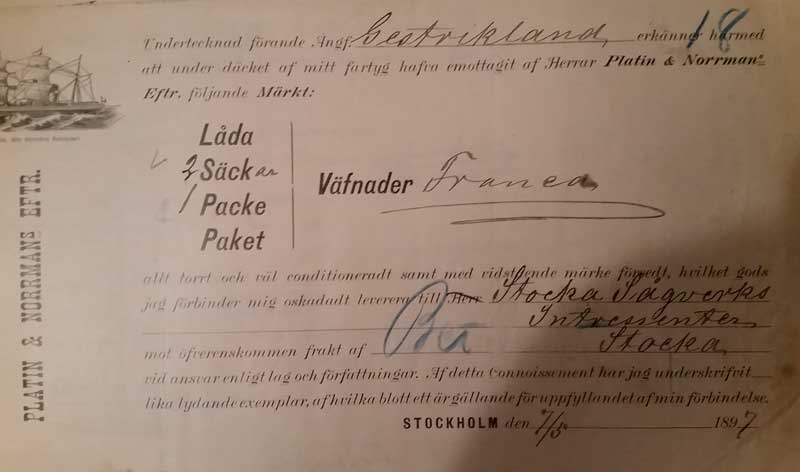 18
Undertecknad förande Angf. Gestrikland, erkänner härmed
att under däcket af mitt fartyg hafva emottagit af Herrar Platin & Norrmans
Eftr. följande Märkt:
Låda
2 Säckar
1 Packe
Paket
Väfnader Franco
allt torrt och väl conditioneradt samt med vidstående märke försedt, hvilket gods
jag förbinder mig oskadadt leverera till Herr Stocka Sågverks
Intressenter
mot öfverenskommen frakt af Stocka
vid ansvar enligt lag och författningar. Af detta Connoissement har jag underskrifvit
lika lydande exemplar, af hvilka blott ett är gällande för uppfyllandet af min förbindelse.
STOCKHOLM den 7/5 1897
PLATIN & NORRMANS EFTR.